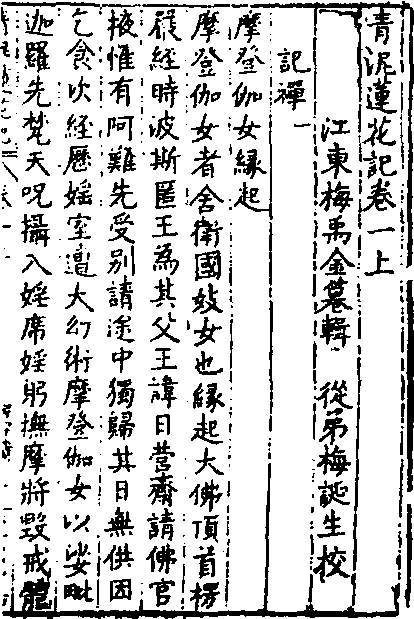 青泥蓮花記卷一上
江東梅禹金纂輯 從弟梅誕生校
記禪一
摩登伽女緣起
摩登伽女者舍衛國妓女也緣起大佛頂首楞
嚴經時波斯匿王為其父王諱日營齋請佛宮
掖惟有阿難先受別請途中獨歸其日無供因
乞食次經歷婬室遭大幻術摩登伽女以娑毗
迦羅先梵天呪攝入婬席婬躬撫摩將毀戒體